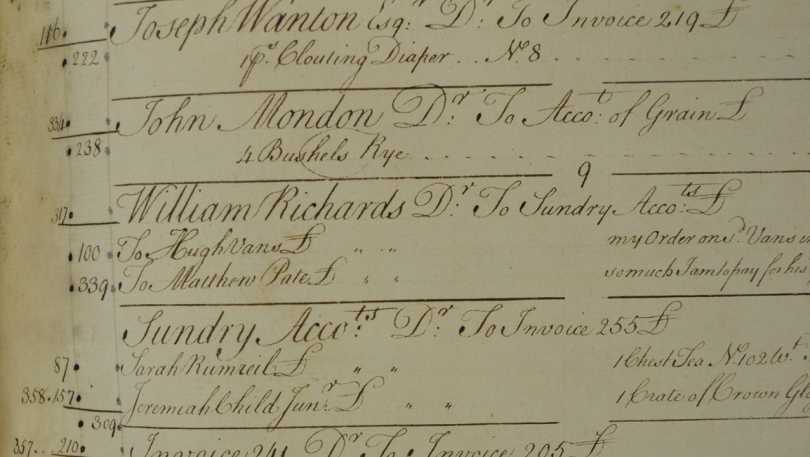 116. Joseph Wanton Esq.r D.r To Invoice 219 £
222 1 p.s Clouting Diaper .. N.o 8
334 John Mondon D.r To Acco.t of Grain £
238 4 Bushels Rye
9
317. William Richards D.r To Sundry Acco.ts £
100 To Hugh Vans £ " " my Order on s.d Vans
339 To Matthew Pate £ " " so much I am to pay for his
Sundry Acco.ts D.r To Invoice 255 £
87 Sarah Rumreil £ " " 1 Chest Tea N.o 102 W.t
358.157 Jeremiah Child Jun.r £ " " 1 Crate of Crown
309
357..210. Invoice 241 D.r To Invoice 205 £